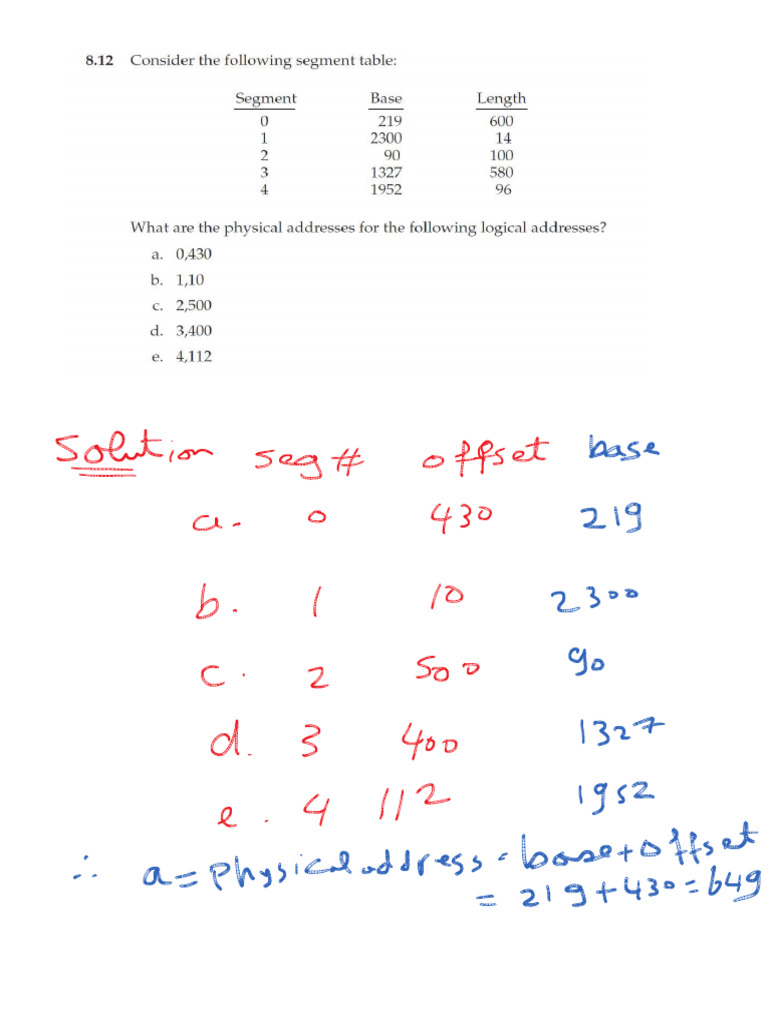 8.12 Consider the following segment table:
Segment Base Length
0 219 600
1 2300 14
2 90 100
3 1327 580
4 1952 96
What are the physical addresses for the following logical addresses?
a. 0,430
b. 1,10
c. 2,500
d. 3,400
e. 4,112
Solution seg # offset base
a. 0 430 219
b. 1 10 2300
c. 2 500 90
d. 3 400 1327
e. 4 112 1952
∴ a = Physical address = base + offset
= 219 + 430 = 649